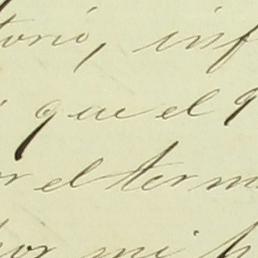 torio, inf
que el q
or el term
por mi h